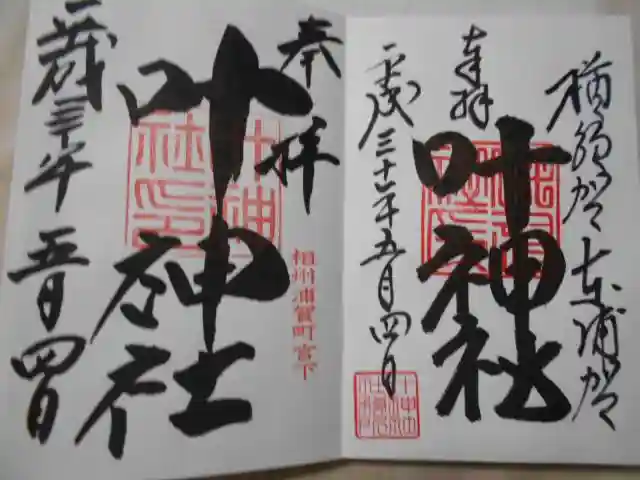 横須賀東浦賀
奉拝
叶神社
平成三十年五月四日
奉拝
叶神社
相州浦賀町宮下
平成三十年
五月四日